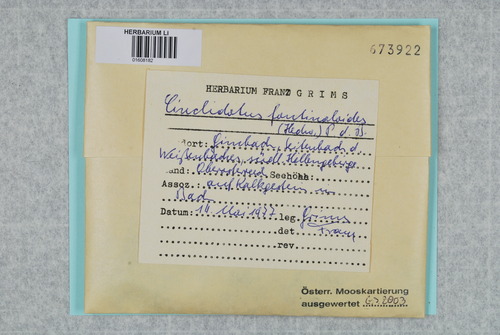 HERBARIUM LI
673922
HERBARIUM FRANZ GRIMS
Cinclidotus fontinaloides
(Hedw.) P. d. B.
dort:
Weißenbaches, südl. Höllengebirge
and: Oberösterr. Seehöhe:
Assoz. auf Kalkfelsen im
Bach
Datum: 16 Mai 1977 leg. Grims
det Franz
rev.
Österr. Mooskartierung
ausgewertet GS 2003